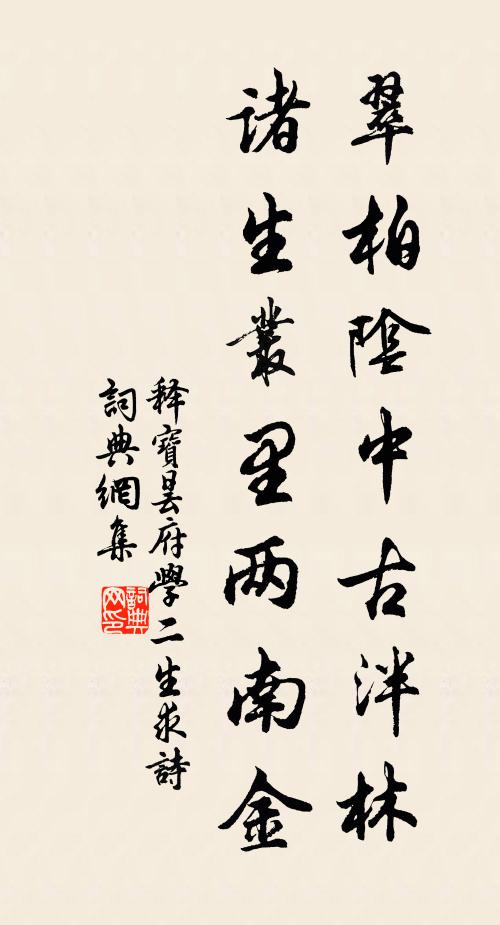 翠柏陰中古泮林
諸生叢里两南金
释寶昙府學二生求詩
詞典網集
詞典网印